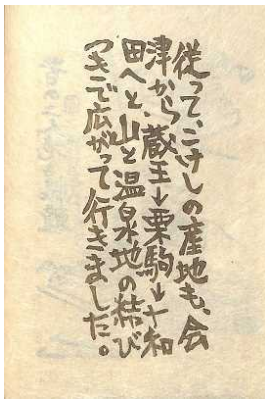 従って、こけしの産地も、会
津から蔵王↓栗駒↓十和
田へと、山と温泉地の結び
つきで広がって行きました。